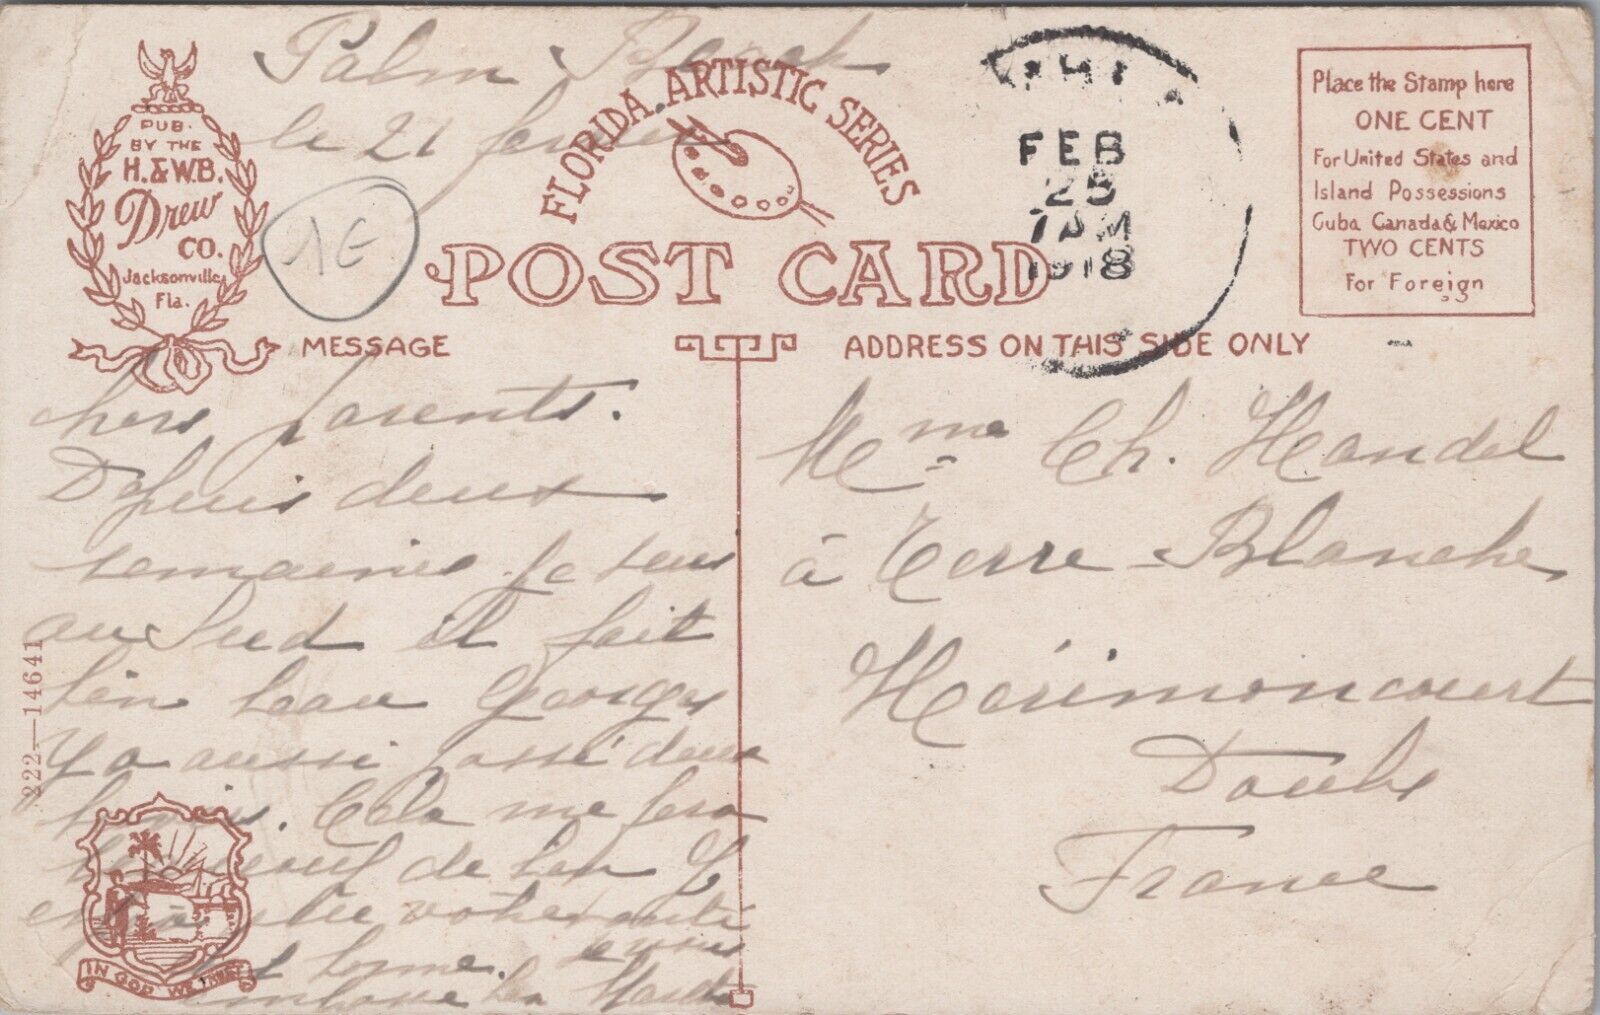 Palm Beach
le 21 fevrier
PUB.
BY THE
H. & W.B.
Drew
CO.
Jacksonville,
Fla.
1E
FLORIDA ARTISTIC SERIES
POST CARD
FEB
25
7 AM
1918
Place the Stamp here
ONE CENT
For United States and
Island Possessions
Cuba, Canada & Mexico
TWO CENTS
For Foreign
MESSAGE
ADDRESS ON THIS SIDE ONLY
chers parents.
Depuis deux
semaines je suis
au Sud il fait
bien beau Georges
y a aussi passé deux
Cela me fera
de bien J
espère votre santé
est bonne.
222—14641
IN GOD WE TRUST
Mme Ch. Handel
à Terre-Blanche
Hérimoncourt
Doubs
France